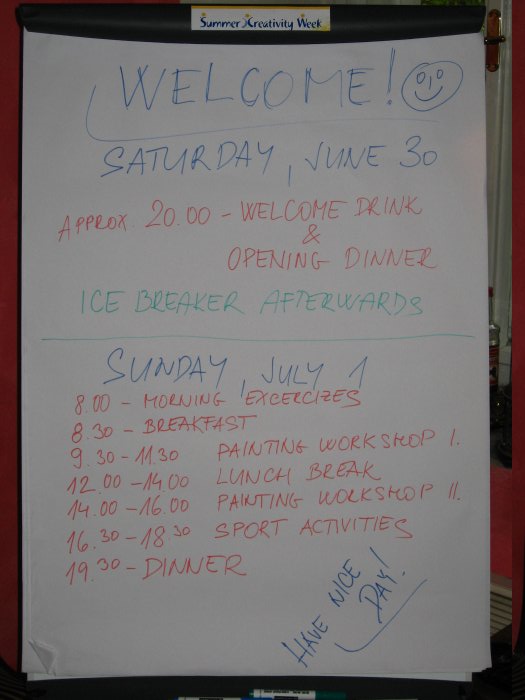 Summer Creativity Week
WELCOME!
SATURDAY, JUNE 30
APPROX. 20.00 - WELCOME DRINK
&
OPENING DINNER
ICE BREAKER AFTERWARDS
SUNDAY, JULY 1
8.00 - MORNING EXCERCIZES
8.30 - BREAKFAST
9.30 - 11.30 PAINTING WORKSHOP I.
12.00 - 14.00 LUNCH BREAK
14.00 - 16.00 PAINTING WORKSHOP II.
16.30 - 18.30 SPORT ACTIVITIES
19.30 - DINNER
HAVE NICE
DAY!